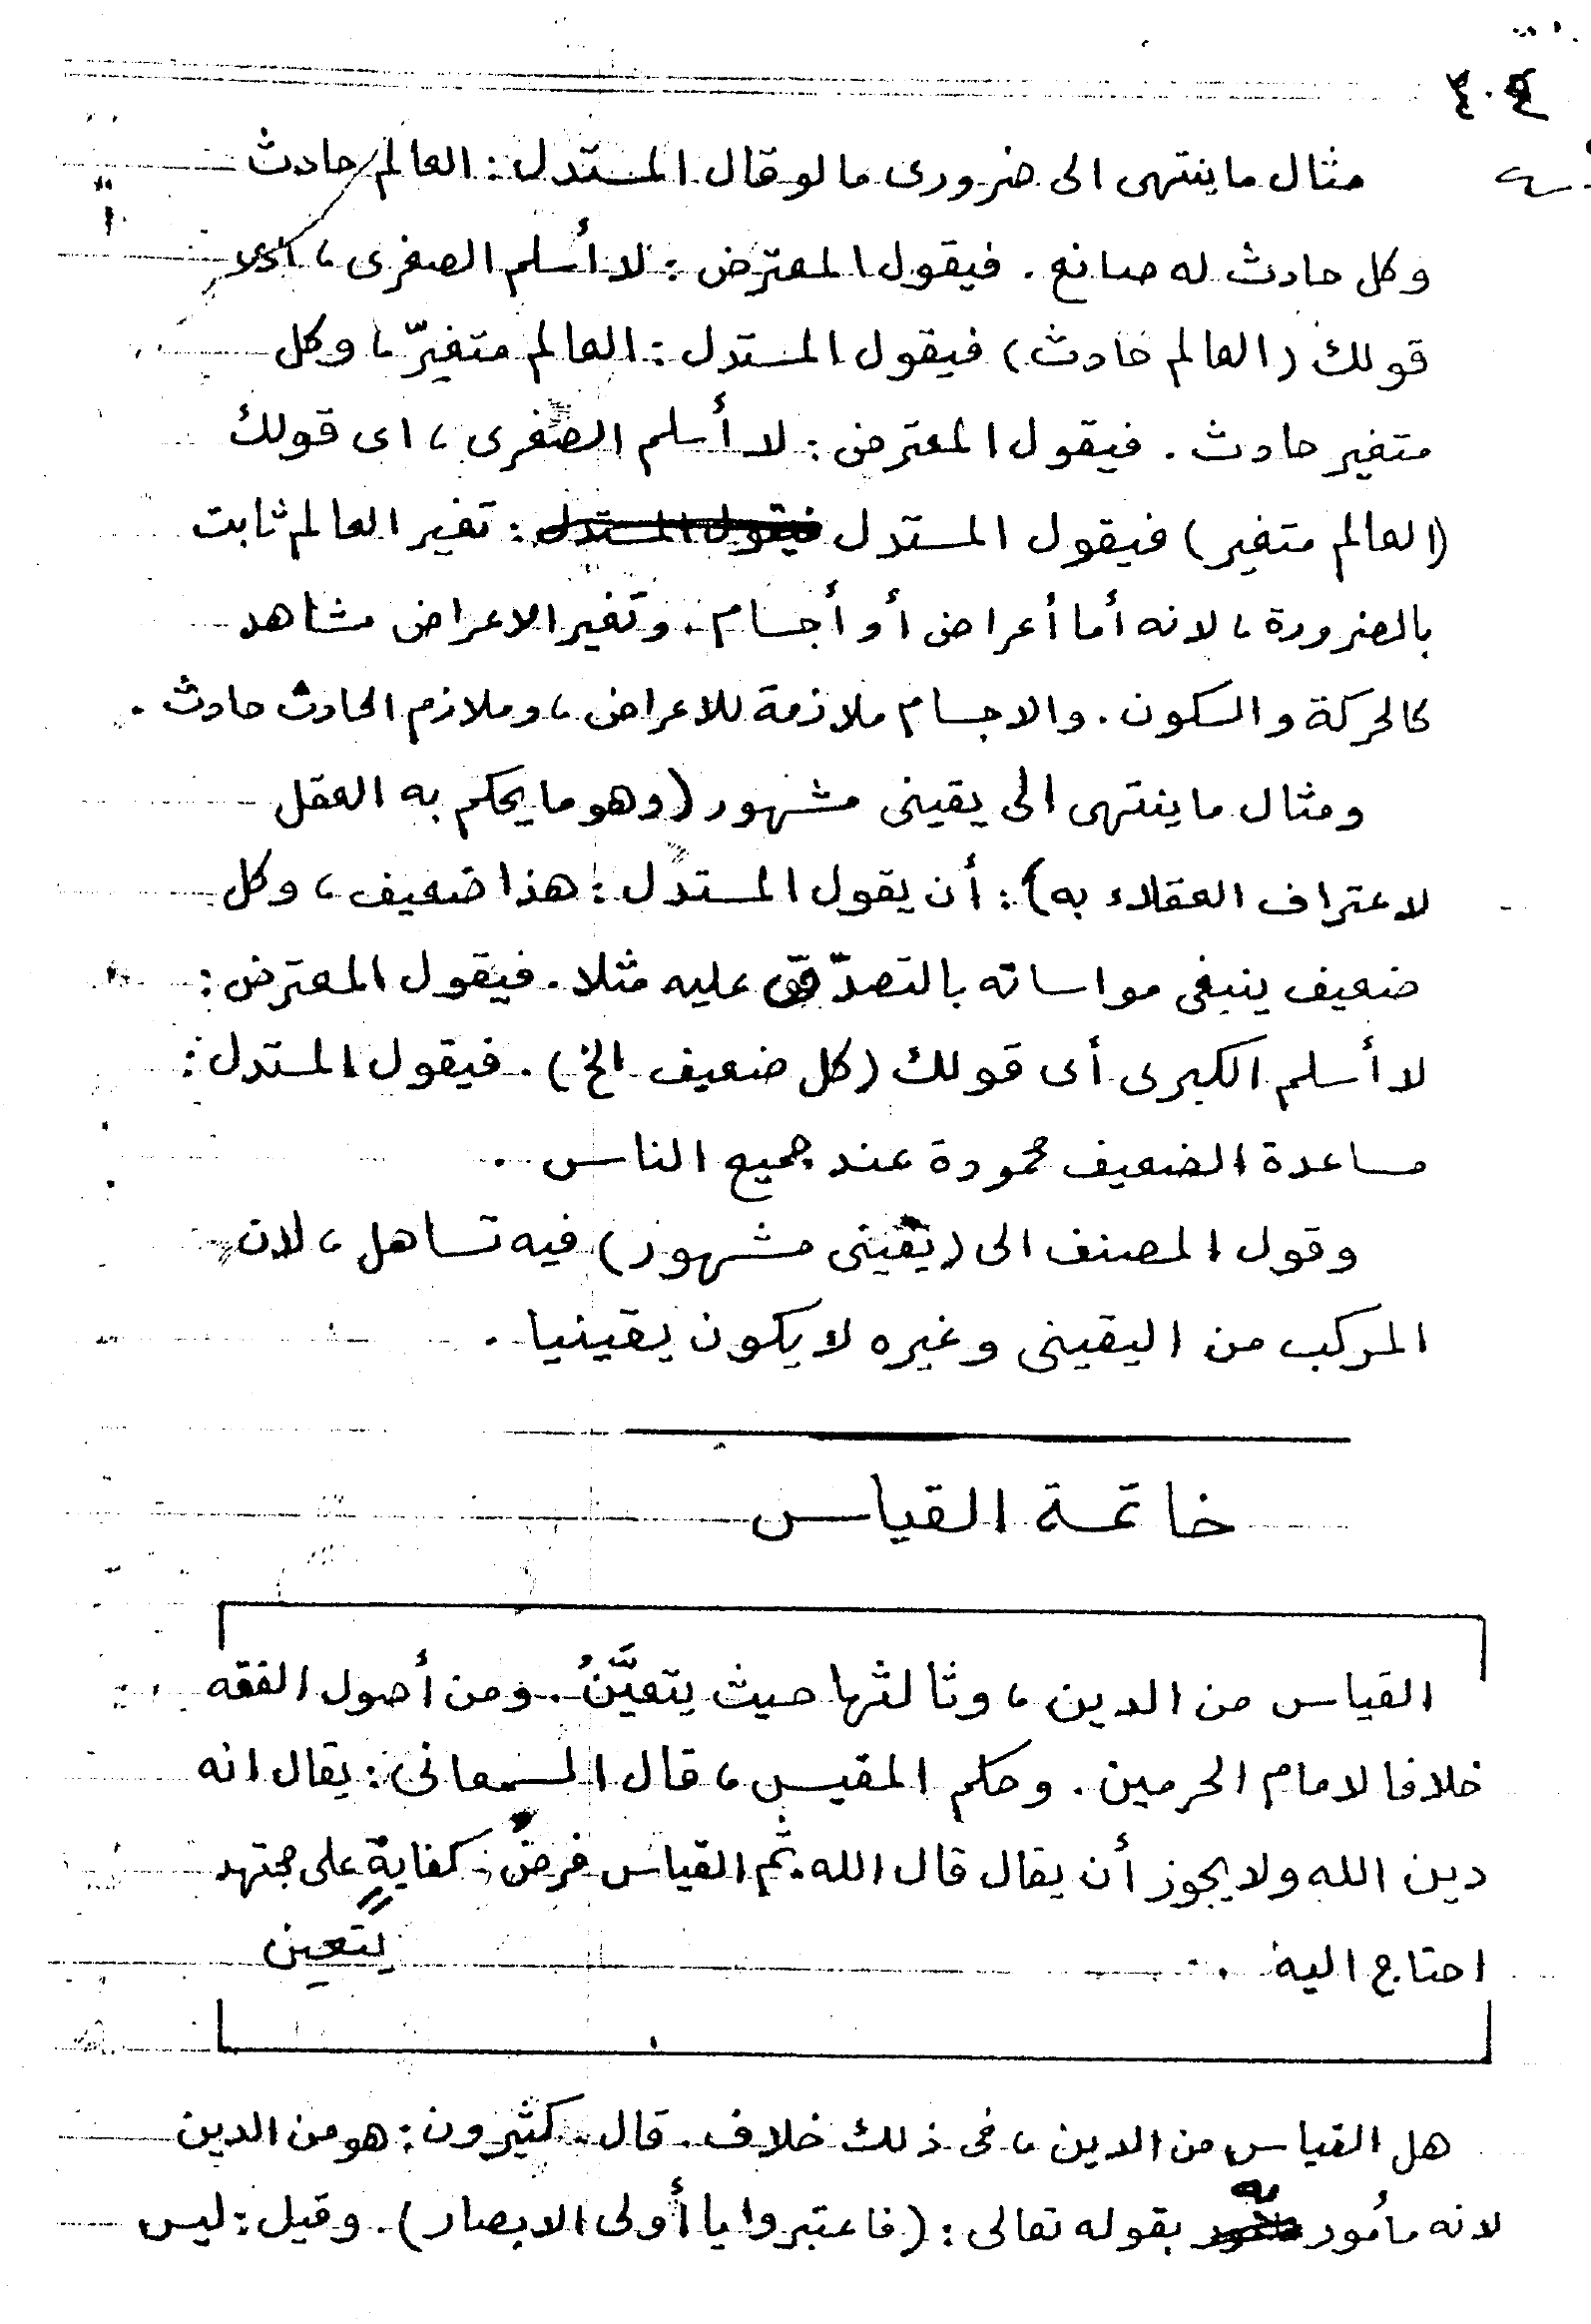 ٣٠٤
مثال ما ينتهى الى ضرورى ما لو قال المستدل : العالم حادث
وكل حادث له صانع . فيقول المعترض : لا أسلم الصغرى ،
قولك (العالم حادث) فيقول المستدل : العالم متغيّر ، وكل
متغير حادث . فيقول المعترض : لا أسلم الصغرى ، اى قولك
(العالم متغير) فيقول المستدل : تغير العالم ثابت
بالضرورة ، لانه أما أعراض أو أجسام . وتغير الاعراض مشاهد
كالحركة والسكون . والاجسام ملازمة للاعراض ، وملازم الحادث حادث .
ومثال ما ينتهى الى يقينى مشهور (وهو ما يحكم به العقل
لاعتراف العقلاء به) : أن يقول المستدل : هذا ضعيف ، وكل
ضعيف ينبغى مواساته بالتصدّق عليه مثلا . فيقول المعترض :
لا أسلم الكبرى أى قولك (كل ضعيف الخ) . فيقول المستدل :
مساعدة الضعيف محمودة عند جميع الناس .
وقول المصنف الى (يقينى مشهور) فيه تساهل ، لان
المركب من اليقينى وغيره لا يكون يقينيا .
خاتمة القياس
القياس من الدين ، وثالثها حيث يتعيَّنُ . ومن أصول الفقه
خلافا لامام الحرمين . وحكم المقيس ، قال السمعانى : يقال انه
دين الله ولا يجوز أن يقال قال الله . ثم القياس فرضُ كفايةٍ على مجتهد
احتاج اليه . يتعين
هل القياس من الدين ، فى ذلك خلاف . قال كثيرون : هو من الدين
لانه مأمور به بقوله تعالى : (فاعتبروا يا أولى الابصار) . وقيل : ليس